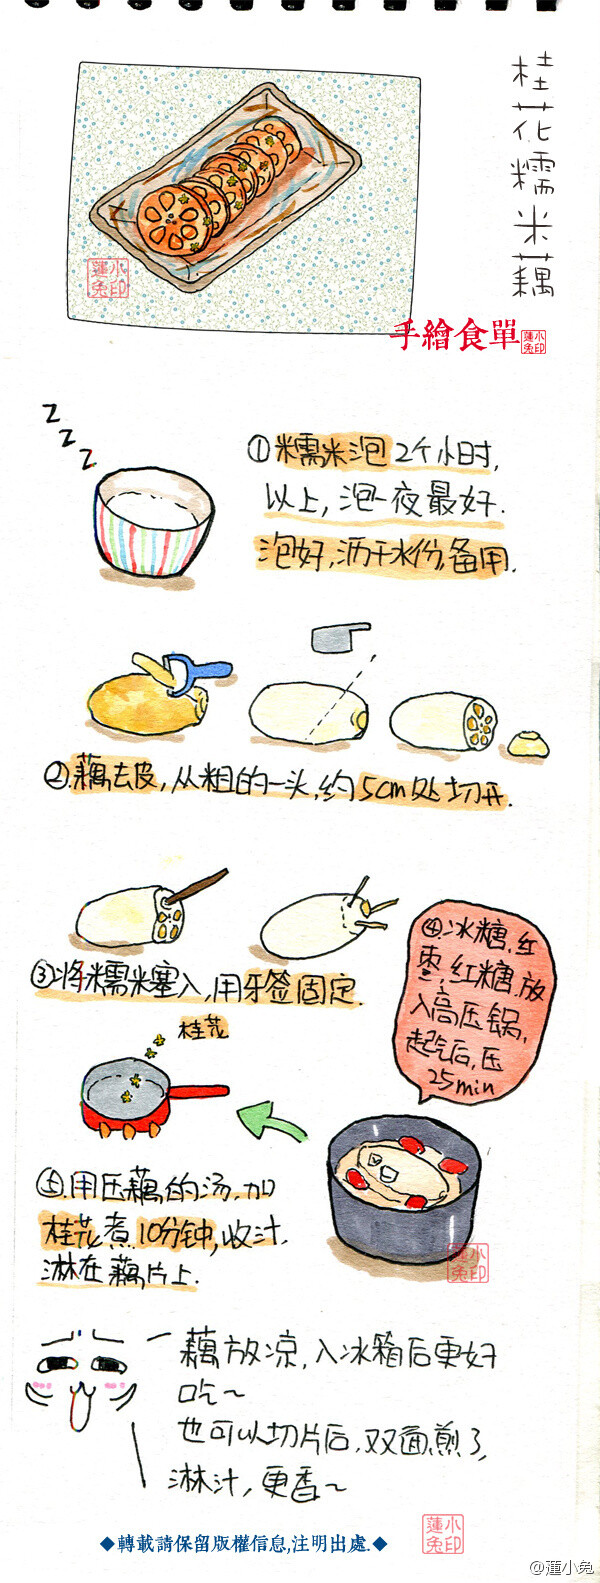 桂花糯米藕
蓮小
兔印
手繪食單
蓮小
兔印
Z
Z
Z
①糯米泡2个小时,
以上,泡一夜最好.
泡好,沥干水份,备用.
②.藕去皮,从粗的一头,约5cm处切开.
③将糯米塞入,用牙签固定.
④.冰糖,红
枣,红糖,放
入高压锅,
起气后,压
25min
桂花
⑤.用压藕的汤,加
桂花煮10分钟,收汁.
淋在藕片上.
蓮小
兔印
藕放凉,入冰箱后更好
吃~
也可以切片后,双面煎了,
淋汁,更香~
◆轉載請保留版權信息,注明出處.◆
蓮小
兔印
@蓮小兔